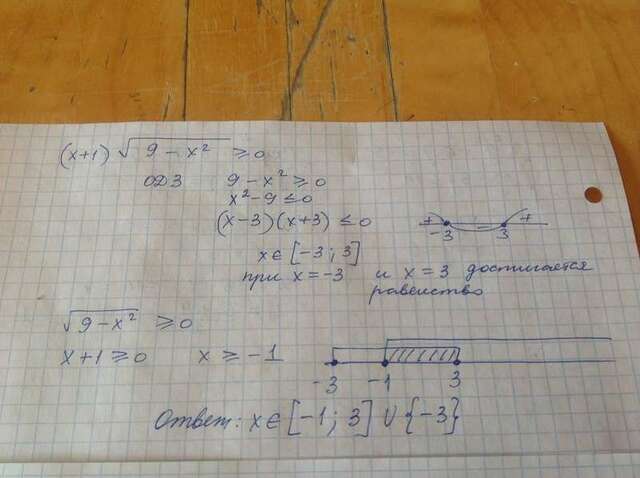 (x+1) √(9 - x²) ≥ 0
ОДЗ 9 - x² ≥ 0
x² - 9 ≤ 0
(x-3)(x+3) ≤ 0
+ +
-3 3
x ∈ [-3 ; 3]
при x = -3 и x = 3 достигается
равенство
√(9 - x²) ≥ 0
x + 1 ≥ 0 x ≥ -1
-3 -1 3
Ответ: x ∈ [-1 ; 3] ∪ {-3}